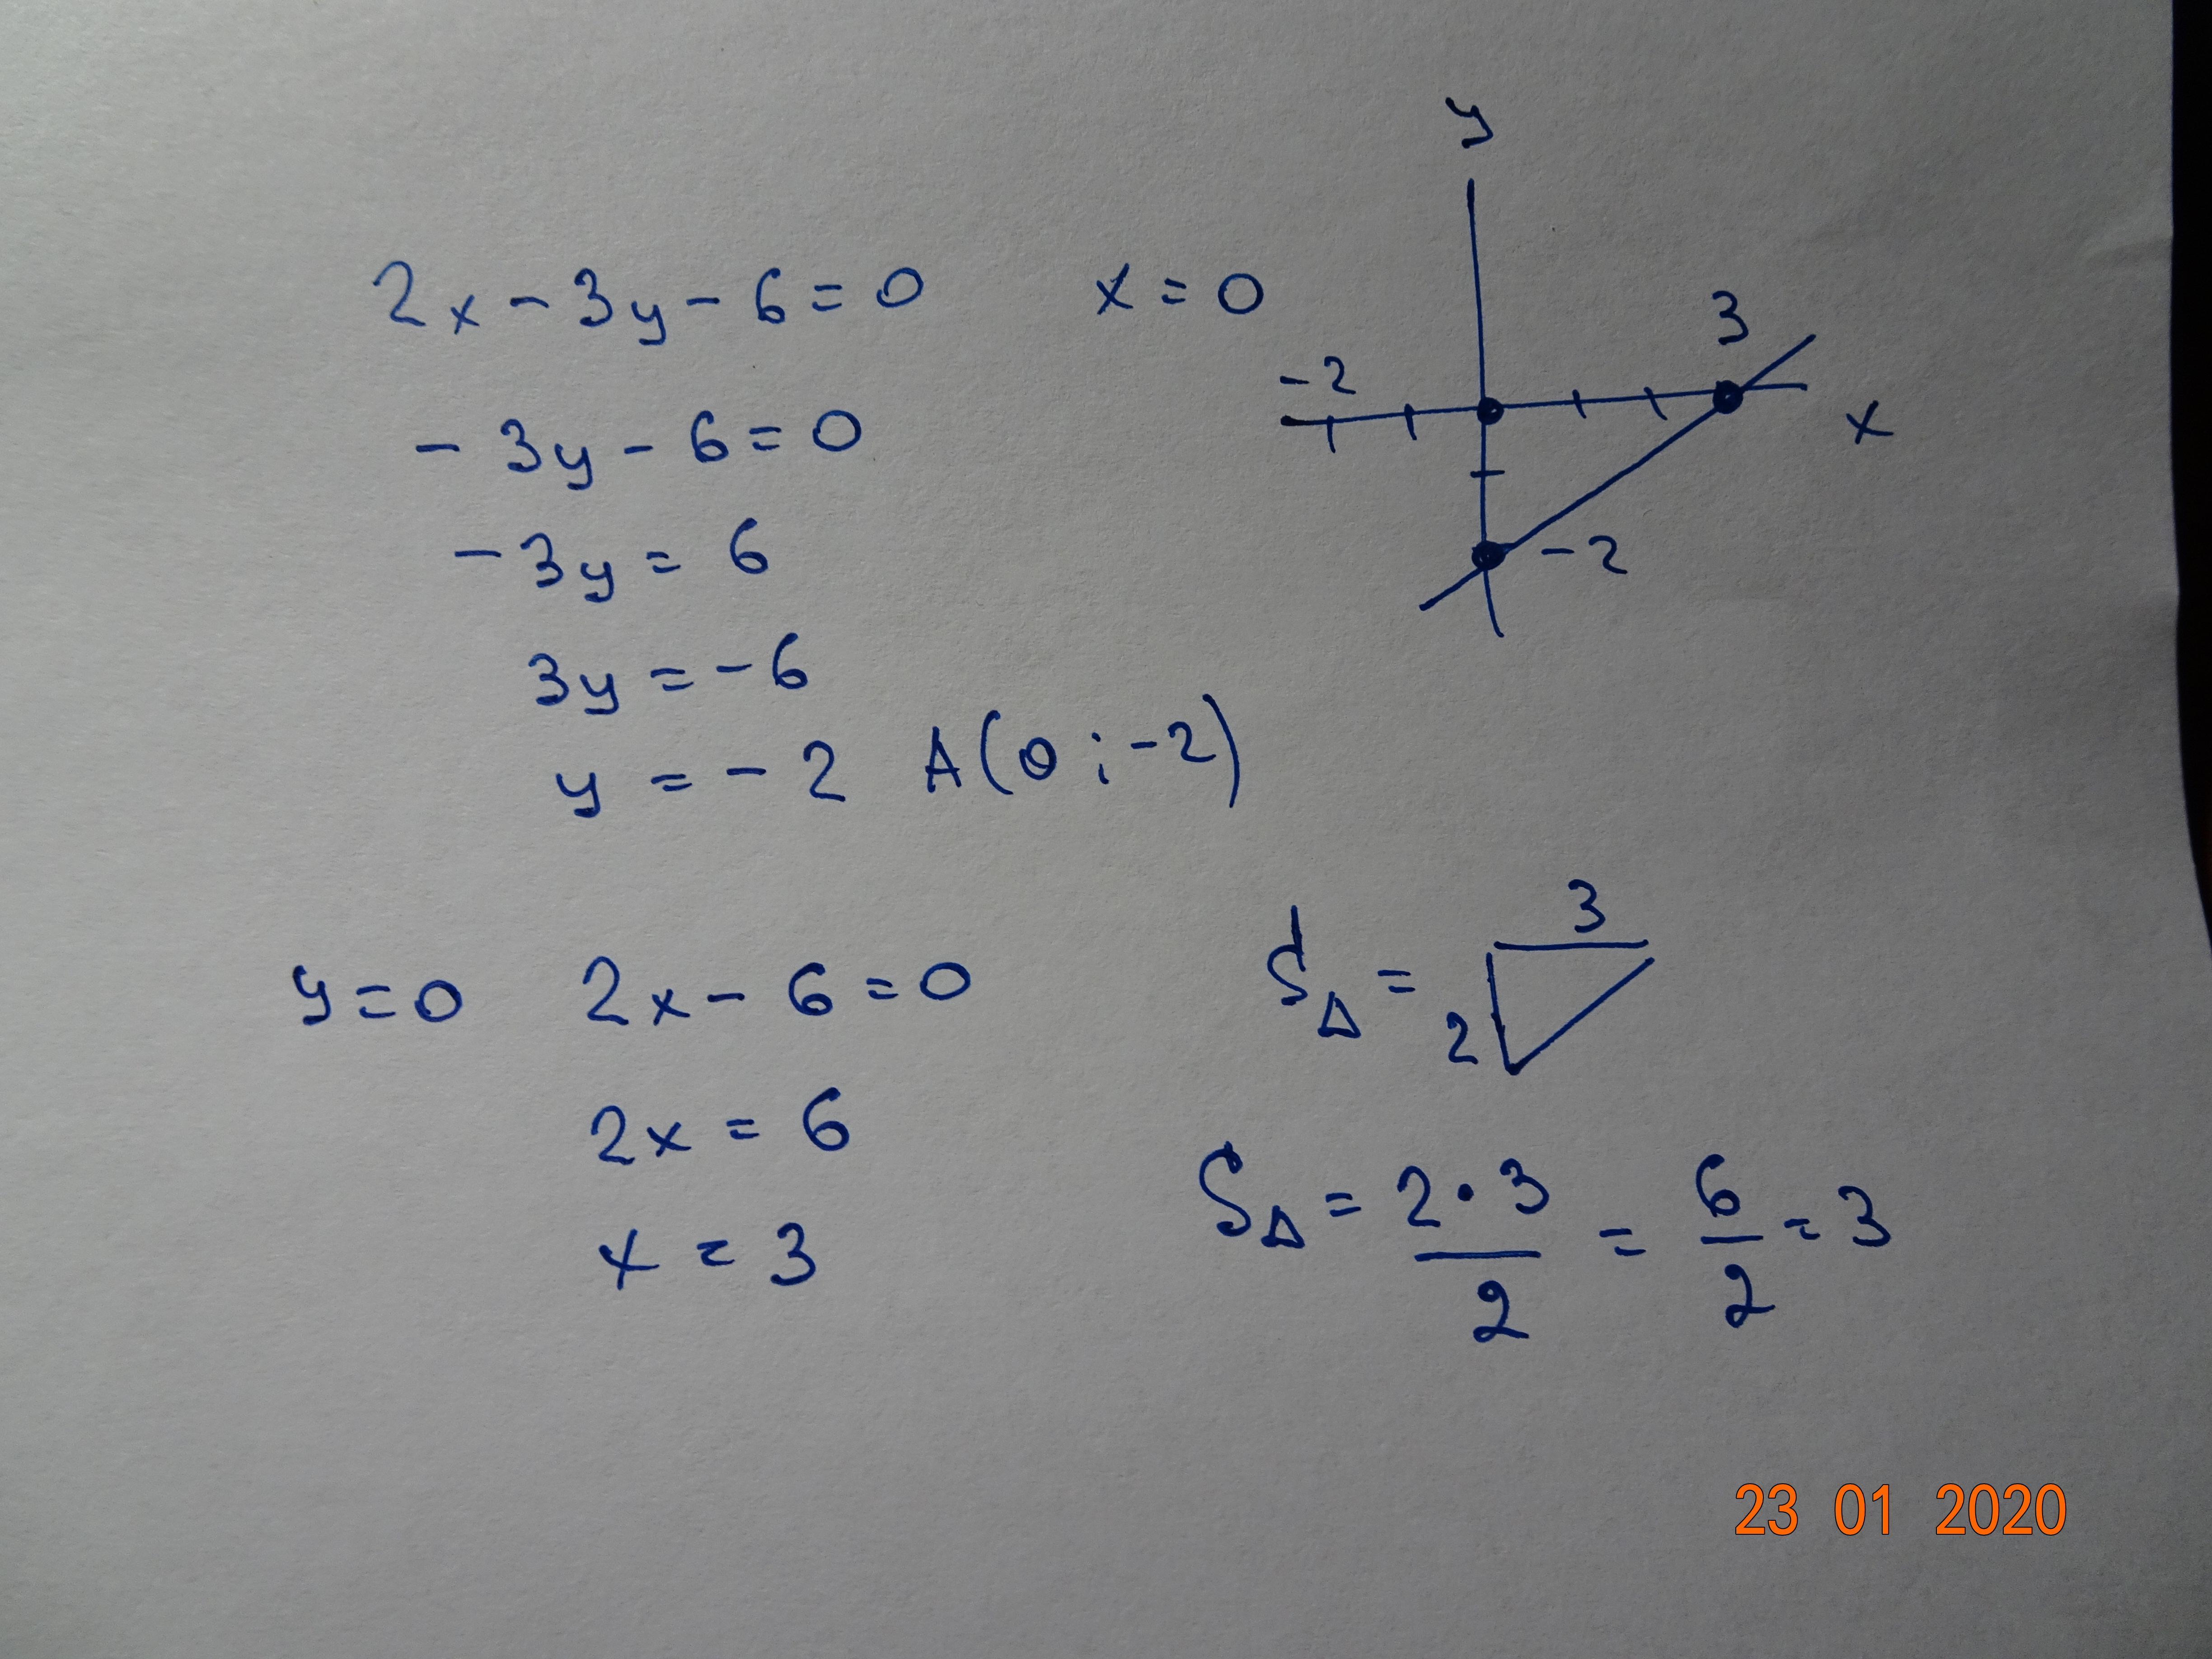 y
2x - 3y - 6 = 0 x = 0
3
-2
x
- 3y - 6 = 0
-2
- 3y = 6
3y = - 6
y = - 2 A(0 ; -2)
3
S△ =
2
y = 0 2x - 6 = 0
2x = 6
x = 3
S△ = 2 · 3 / 2 = 6 / 2 = 3
23 01 2020